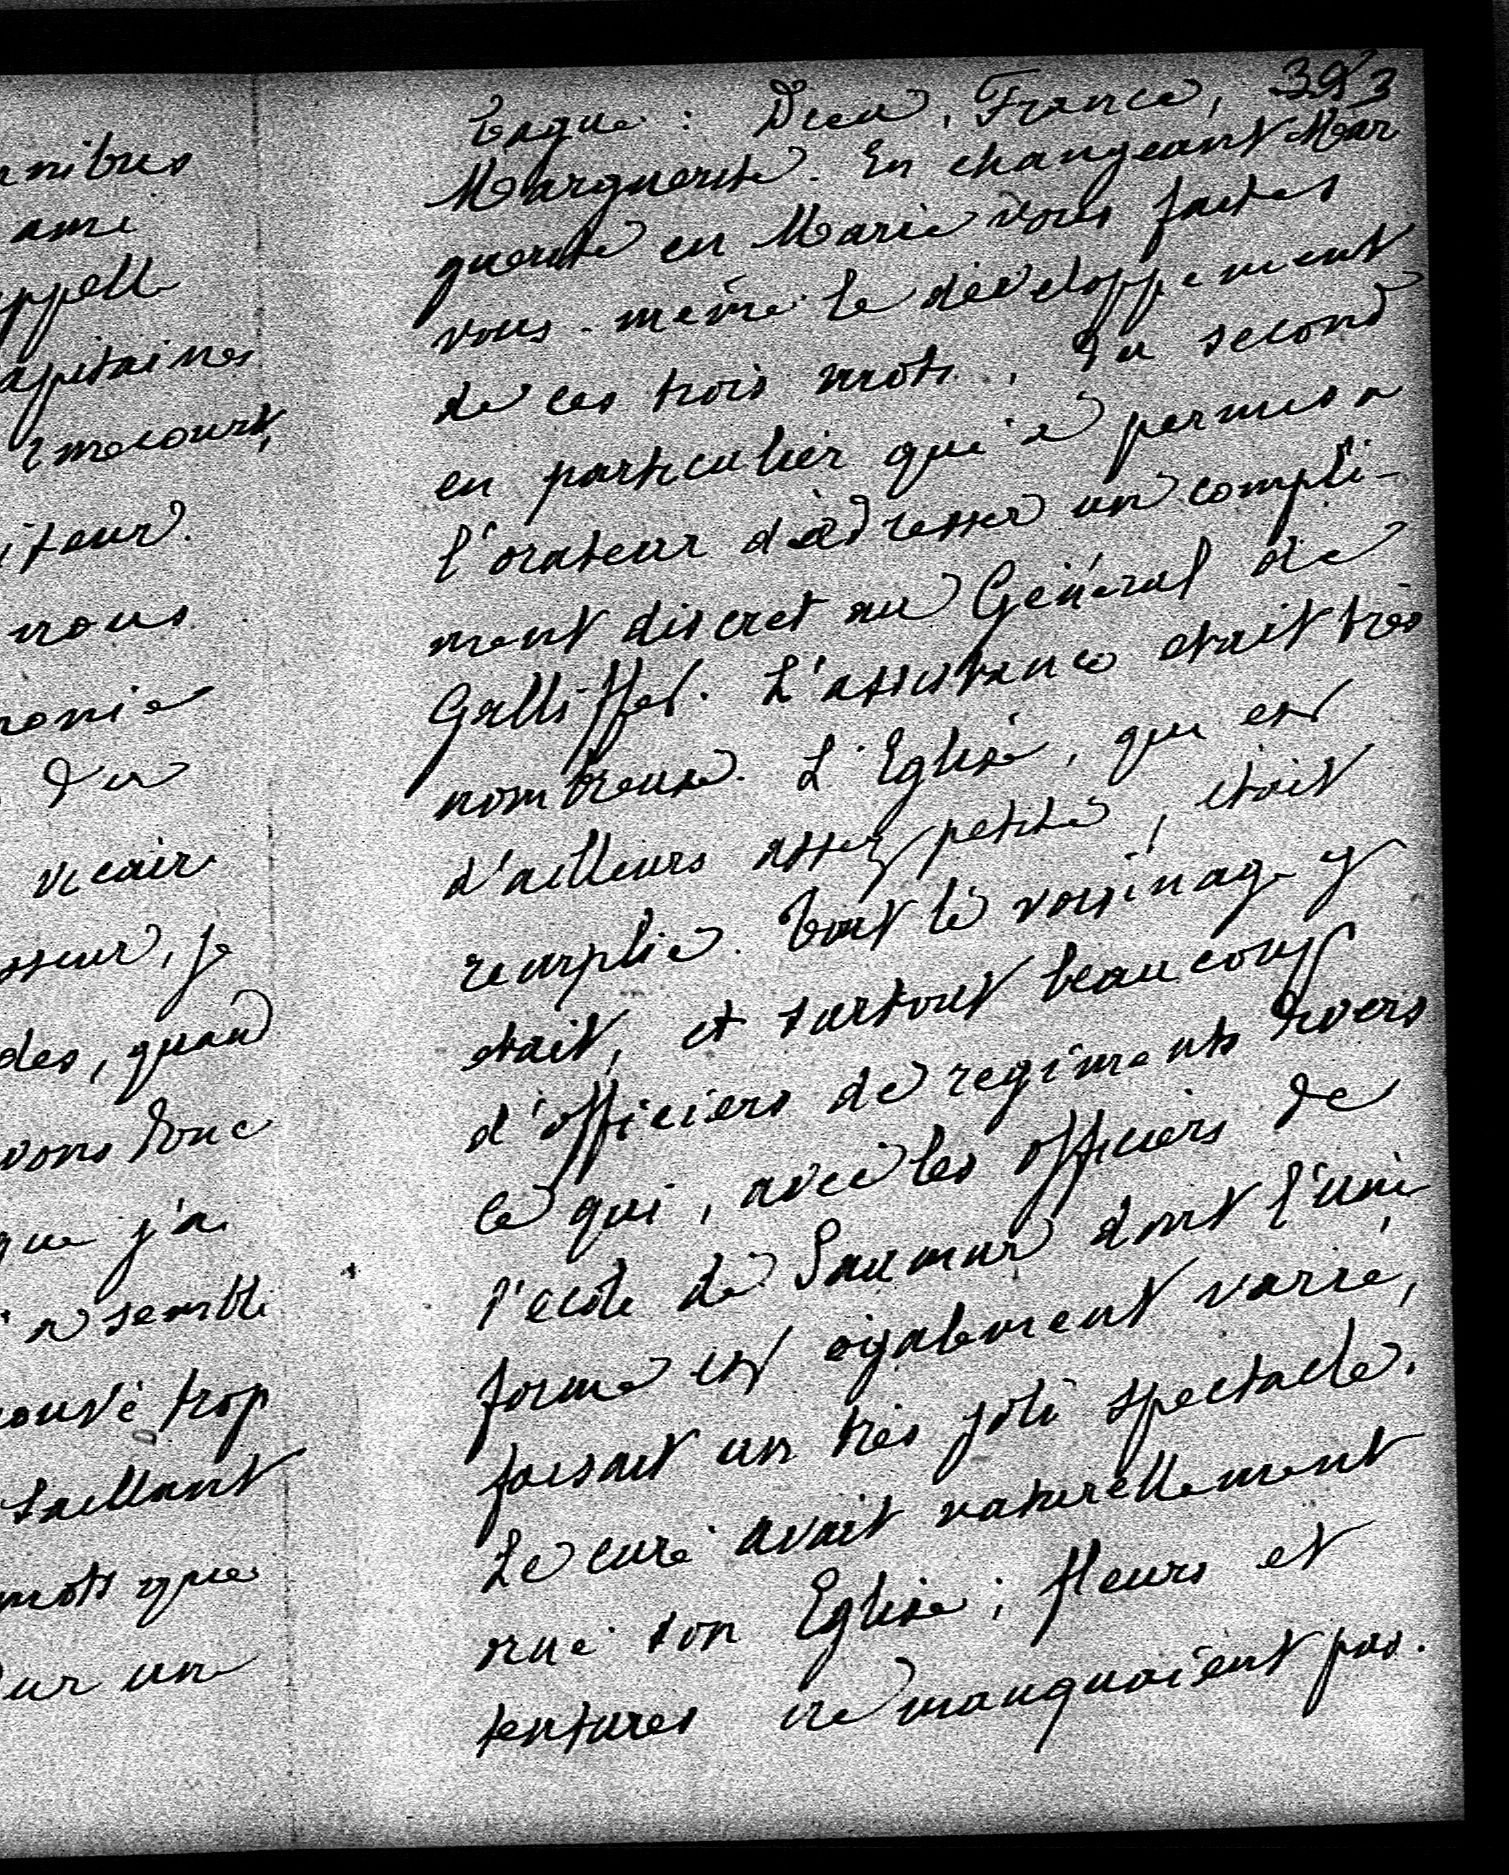 393
nibus
ami
appelle
capitaines
imecourt,
iteur.
nous
monie
du
vicaire
sseur, je
des, quand
vons donc
que j'ai
a semblé
rouvé trop
saillant
mots que
sur un
Marguerite. En changeant Mar
guerite en Marie vous faites
vous-même le développement
de ces trois mots. Du second
en particulier qui a permis a
l'orateur d'adresser un compli-
ment discret au Général de
Galliffet. L'assistance etait très
nombreuse. L'Eglise, qui est
d'ailleurs assez petite, etait
remplie. Tout le voisinage y
etait, et surtout beaucoup
d'officiers de regiments divers
ce qui, avec les officiers de
l'ecole de Saumur dont l'uni
forme est également varié,
faisait un très joli spectacle.
Le curé avait naturellement
orné son Eglise; fleurs et
tentures ne manquaient pas.